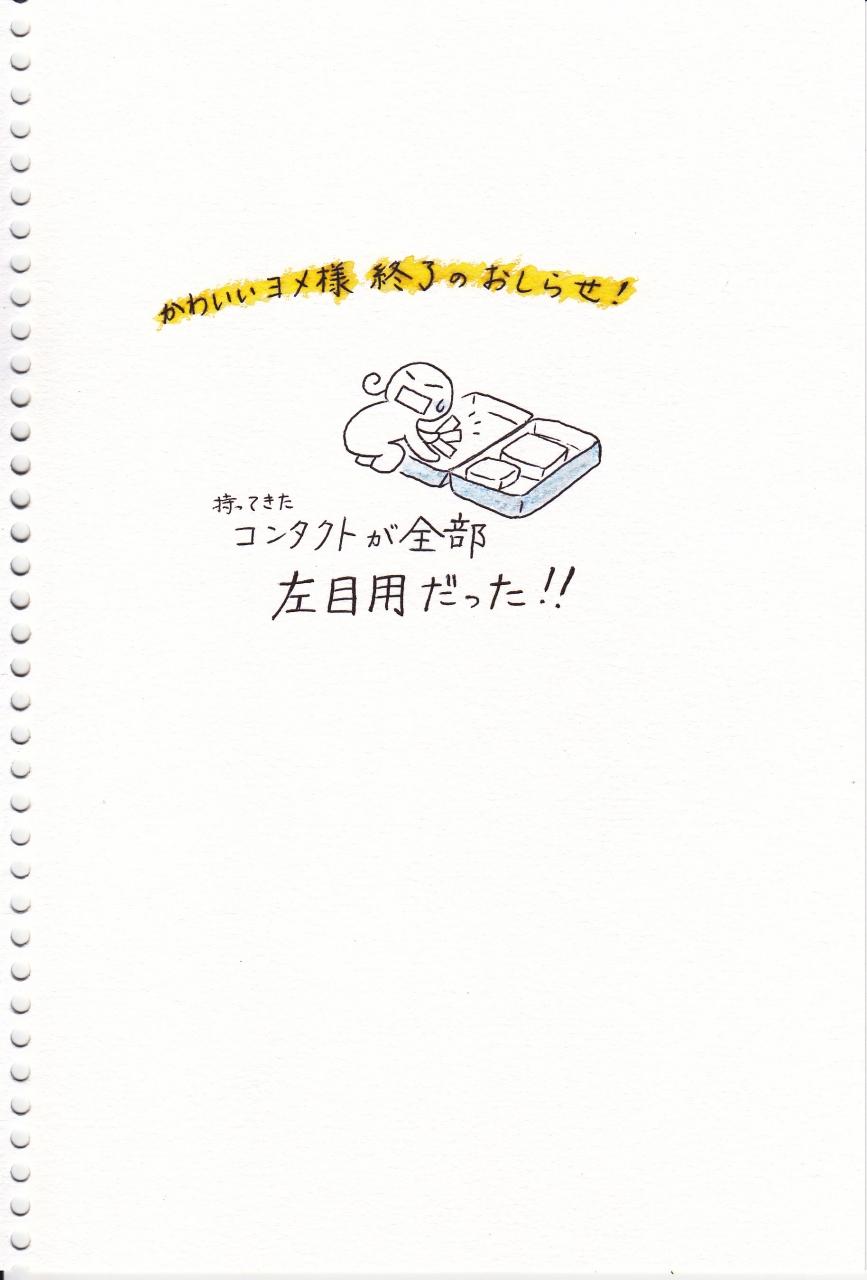 かわいいヨメ様 終了のおしらせ!
持ってきた
コンタクトが全部
左目用だった!!